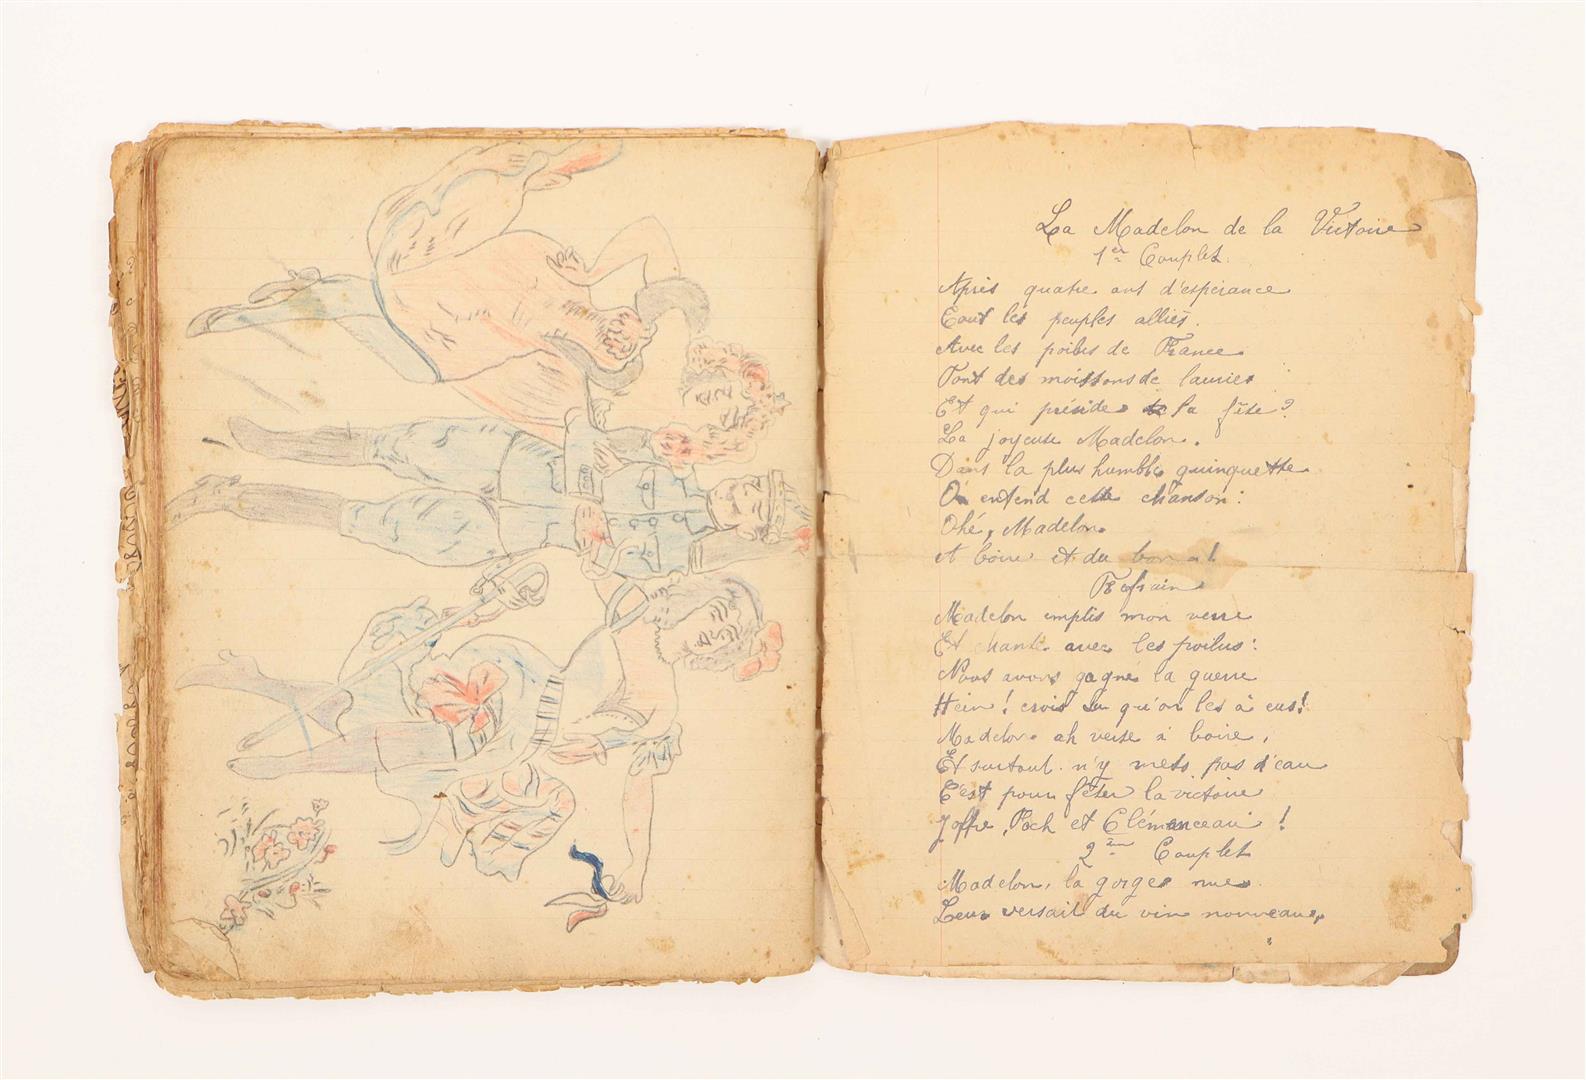 La Madelon de la Victoire
1er Couplet
Après quatre ans d'espérance
Tout les peuples alliés
Avec les poilus de France
Font des moissons de lauries
Et qui préside la fête?
La joyeuse Madelon.
Dans la plus humble guinguette
On entend cette chanson:
Ohé, Madelon
A boire et du bon!
Refrain
Madelon emplis mon verre
Et chante avec les poilus:
Nous avons gagné la guerre
Hein! crois tu qu'on les à eus!
Madelon ah verse à boire,
Et surtout n'y mets pas d'eau
C'est pour fêter la victoire
Joffre, Foch et Clémenceau!
2ème Couplet
Madelon, la gorge nue
Leur versait du vin nouveau,